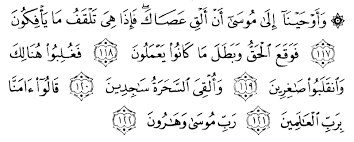 ۞ وَأَوْحَيْنَآ إِلَىٰ مُوسَىٰٓ أَنْ أَلْقِ عَصَاكَ ۖ فَإِذَا هِىَ تَلْقَفُ مَا يَأْفِكُونَ
﴿١١٧﴾ فَوَقَعَ ٱلْحَقُّ وَبَطَلَ مَا كَانُوا۟ يَعْمَلُونَ ﴿١١٨﴾ فَغُلِبُوا۟ هُنَالِكَ
وَٱنقَلَبُوا۟ صَـٰغِرِينَ ﴿١١٩﴾ وَأُلْقِىَ ٱلسَّحَرَةُ سَـٰجِدِينَ ﴿١٢٠﴾ قَالُوٓا۟ ءَامَنَّا
بِرَبِّ ٱلْعَـٰلَمِينَ ﴿١٢١﴾ رَبِّ مُوسَىٰ وَهَـٰرُونَ ﴿١٢٢﴾